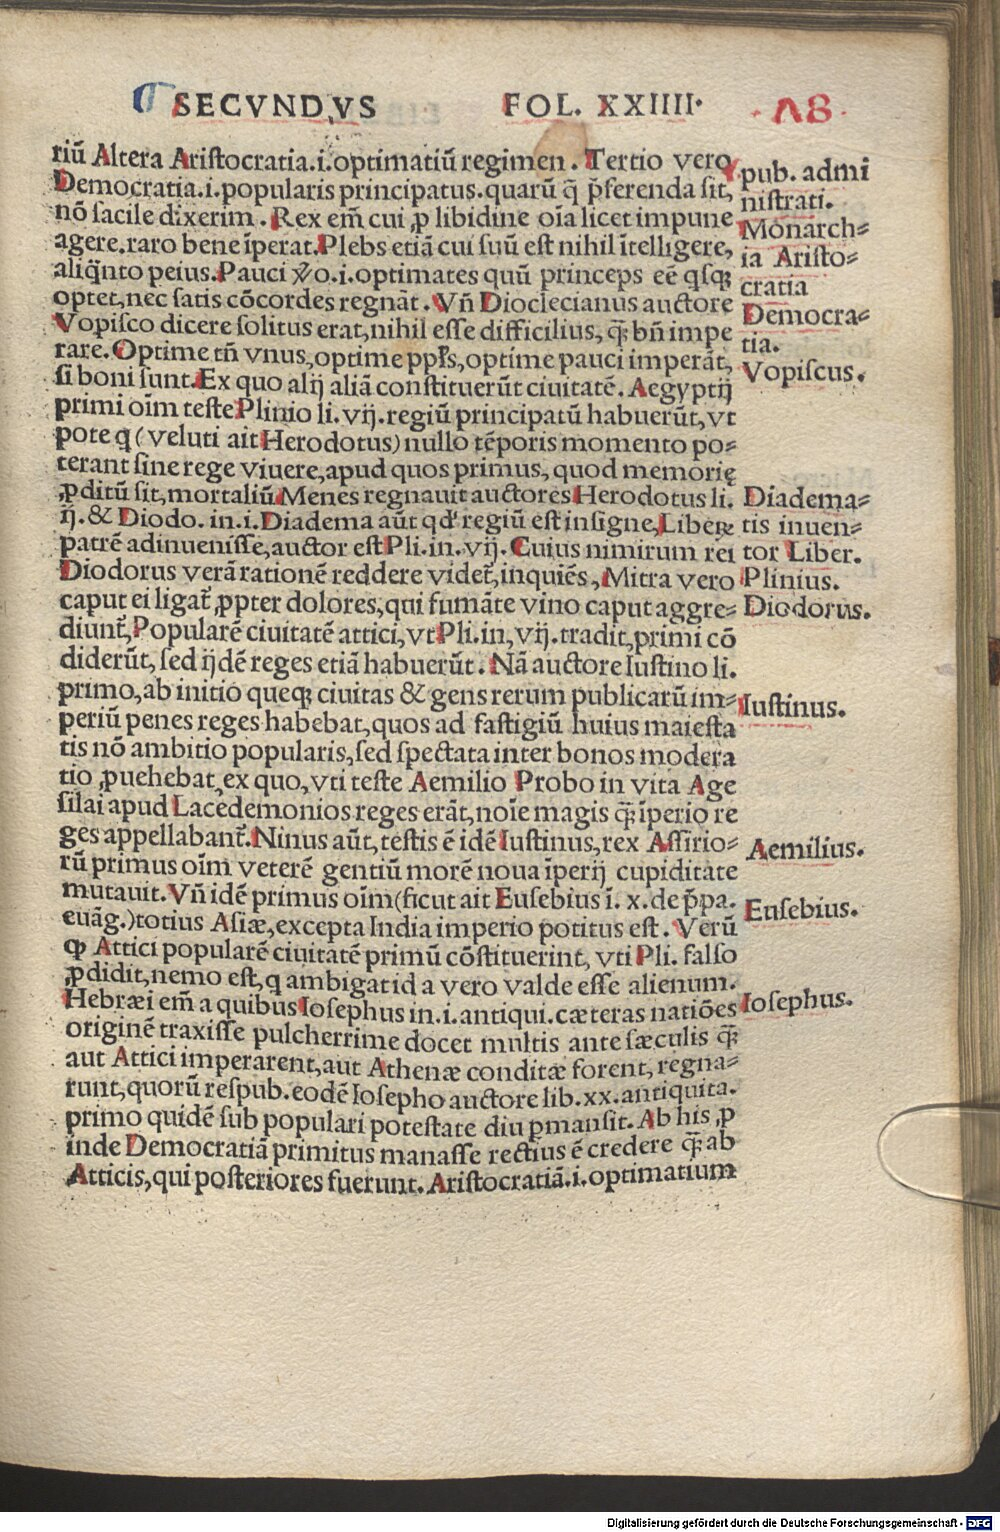 SECVNDVS FOL. XXIIII.
riũ Altera Aristocratia.i.optimatiũ regimen. Tertio vero
Democratia.i.popularis principatus.quarũ q̃ p̃ferenda sit,
nõ facile dixerim. Rex em̃ cui ꝓ libidine oĩa licet impune
agere.raro bene ĩperat. Plebs etiã cui suũ est nihil ĩtelligere,
aliq̃nto peius. Pauci ṽo.i.optimates quũ princeps eẽ qsqꝫ
optet,nec satis cõcordes regnãt. Vñ Dioclecianus auctore
Vopisco dicere solitus erat,nihil esse difficilius,q̃ꝫ bñ impe
rare. Optime tñ vnus,optime ppl̃s,optime pauci imperãt,
si boni sunt. Ex quo alij aliã constituerũt ciuitatẽ. Aegyptij
primi oĩm teste Plinio li.vij.regiũ principatũ habuerũt,vt
pote q (veluti ait Herodotus) nullo tẽporis momento po=
terant sine rege viuere,apud quos primus, quod memorię
ꝓditũ sit,mortaliũ Menes regnauit auctores Herodotus li.
ij.& Diodo.in.i. Diadema aũt qd' regiũ est insigne, Liberꝫ
patrẽ adinuenisse,auctor est Pli.in.vij. Cuius nimirum rei
Diodorus verã rationẽ reddere videt̃,inquiẽs, Mitra vero
caput ei ligat̃ ꝓpter dolores,qui fumãte vino caput aggre=
diunt̃, Popularẽ ciuitatẽ attici,vt Pli.in,vij.tradit,primi cõ
diderũt,sed ijdẽ reges etiã habuerũt. Nã auctore Iustino li.
primo,ab initio queqꝫ ciuitas & gens rerum publicarũ im=
periũ penes reges habebat,quos ad fastigiũ huius maiesta
tis nõ ambitio popularis,sed spectata inter bonos modera
tio ꝓuehebat,ex quo,vti teste Aemilio Probo in vita Age
silai apud Lacedemonios reges erãt,noĩe magis q̃ꝫ ĩperio re
ges appellabant̃. Ninus aũt,testis ẽ idẽ Iustinus,rex Assirio=
rũ primus oĩm veterẽ gentiũ morẽ noua ĩperij cupiditate
mutauit. Vñ idẽ primus oĩm(ficut ait Eusebius ĩ. x.de p̃pa.
euãg.)totius Asiæ,excepta India imperio potitus est. Verũ
ꝙ Attici popularẽ ciuitatẽ primũ cõstituerint, vti Pli. falso
ꝓdidit,nemo est,q ambigat id a vero valde esse alienum.
Hebræi em̃ a quibus Iosephus in.i.antiqui.cæteras natiões
originẽ traxisse pulcherrime docet multis ante sæculis q̃ꝫ
aut Attici imperarent,aut Athenæ conditæ forent, regna=
runt,quorũ respub.eodẽ Iosepho auctore lib.xx.antiquita.
primo quidẽ sub populari potestate diu ꝑmansit. Ab his ꝓ
inde Democratiã primitus manasse rectius ẽ credere q̃ꝫ ab
Atticis,qui posteriores fuerunt. Aristocratiã.i.optimatium
pub. admi
nistrati.
Monarch=
ia Aristo=
cratia
Democra=
tia.
Vopiscus.
Diadema=
tis inuen=
tor Liber.
Plinius.
Diodorus.
Iustinus.
Aemilius.
Eusebius.
Iosephus.
Digitalisierung gefördert durch die Deutsche Forschungsgemeinschaft - DFG